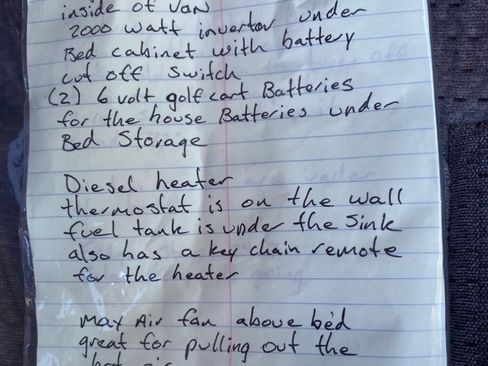 inside of van
2000 watt invertor under
Bed cabinet with battery
cut off switch
(2) 6 volt golf cart Batteries
for the house Batteries under
Bed Storage
Diesel heater
thermostat is on the wall
fuel tank is under the sink
also has a key chain remote
for the heater
Max Air fan above bed
great for pulling out the
hot air